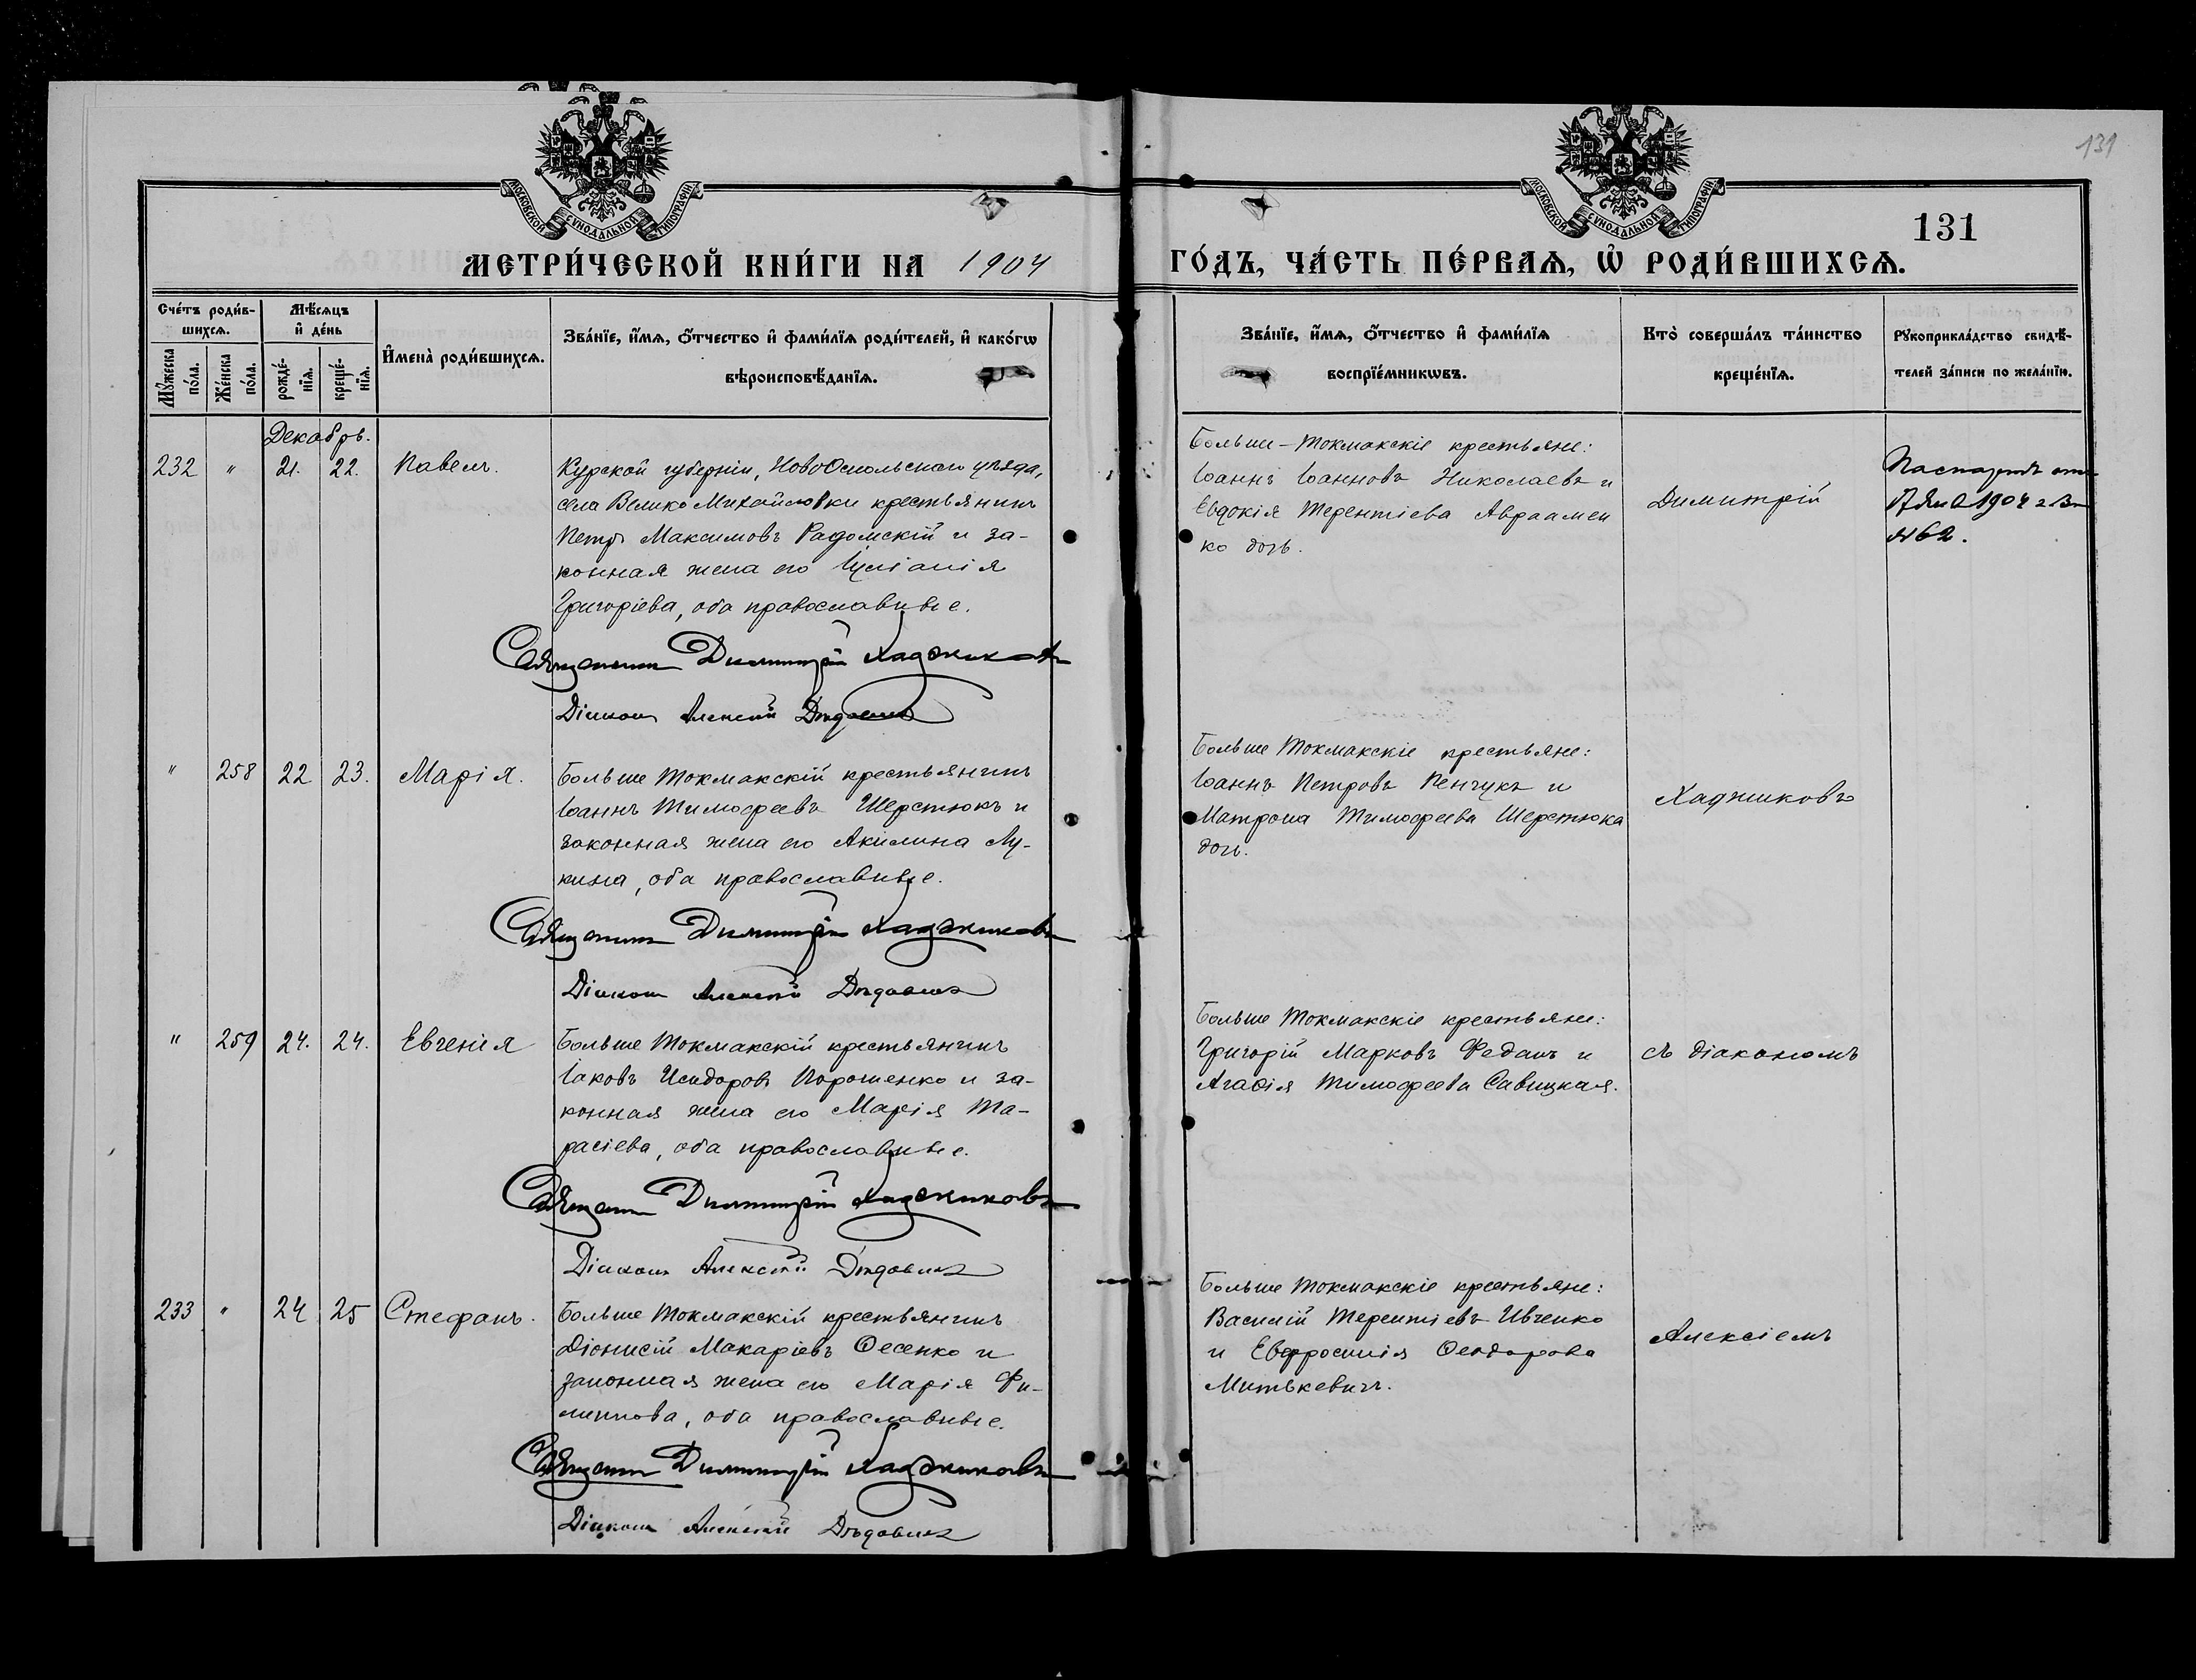 131
МОСКОВСКОЙ СѴНОДАЛЬНОЙ ТИПОГРАФІИ
МОСКОВСКОЙ СѴНОДАЛЬНОЙ ТИПОГРАФІИ
131
МЕТРИ́ЧЕСКОЙ КНИ́ГИ НА 1904
ГО́ДЪ, ЧА́СТЬ ПЕ́РВАѦ, Ѡ҆ РОДИ́ВШИХСѦ.
Сче́тъ роди́в-
шихсѧ.
Мѣ́сѧцъ
и҆ де́нь
Мꙋ́жеска
по́ла.
Же́нска
по́ла.
рожде́-
нїѧ.
креще́-
нїѧ.
И҆мена̀ роди́вшихсѧ.
Зва́нїе, и҆́мѧ, ѻ҆́тчество и҆ фами́лїѧ роди́телей, и҆ како́гѡ
вѣроисповѣ́данїѧ.
Зва́нїе, и҆́мѧ, ѻ҆́тчество и҆ фами́лїѧ
воспрїе́мникѡвъ.
Кто̀ соверша́лъ та́инство
креще́нїѧ.
Рꙋкоприкла́дство свидѣ́-
телей за́писи по жела́нїю.
Декабрь.
232 " 21. 22. Павелъ.
Курской губерніи, НовоОскольскаго уѣзда,
села ВеликоМихайловки крестьянинъ
Петръ Максимовъ Радомскій и за-
конная жена его
Григоріева, оба православные.
Священникъ Димитрій Хаджиковъ
Діаконъ Алексій
Больше-Токмакскіе крестьяне:
Іоаннъ Іоанновъ Николаевъ и
Евдокія Терентіева Авраамен
ко дочь.
Димитрій
Паспортъ отъ
1904 г. за
№62.
" 258 22 23. Марія.
Больше Токмакскій крестьянинъ
Іоаннъ Тимофеевъ Шерстюкъ и
законная жена его Акилина Лу-
кина, оба православные.
Священникъ Димитрій Хаджиковъ
Діаконъ Алексій
Больше Токмакскіе крестьяне:
Іоаннъ Петровъ Пенчукъ и
Матрона Тимофеева Шерстюка
дочь.
Хаджиковъ
" 259 24. 24. Евгенія
Больше Токмакскій крестьянинъ
Іаковъ Исидоровъ Порошенко и за-
конная жена его Марія Та-
расіева, оба православные.
Священникъ Димитрій Хаджиковъ
Діаконъ Алексій
Больше Токмакскіе крестьяне:
Григорій Марковъ Федашъ и
Агафія Тимофеева Савицкая.
съ діакономъ
233 " 24 25 Стефанъ.
Больше Токмакскій крестьянинъ
Діонисій Макаріевъ Ѳесенко и
законная жена его Марія Фи-
липпова, оба православные.
Священникъ Димитрій Хаджиковъ
Діаконъ Алексій
Больше Токмакскіе крестьяне:
Василій Терентіевъ Ивченко
и Евфросинія Ѳеодорова
Митькевичъ.
Алексіемъ